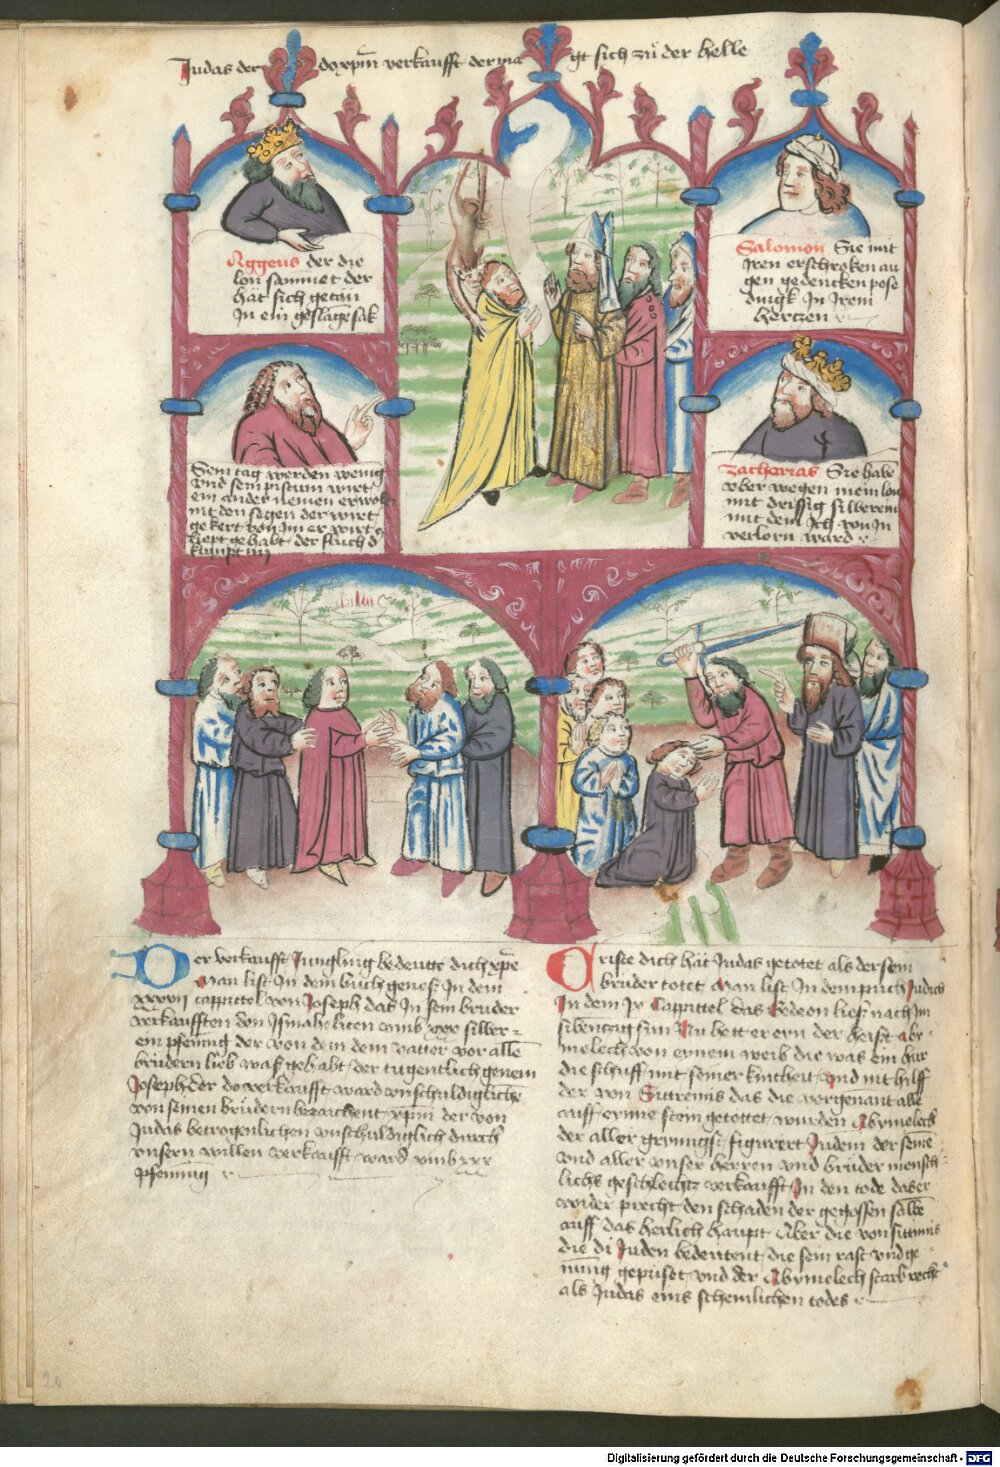 Judas der do xpm̄ verkaufft der ma gt sich zů der helle
Aggeus der die
lon sammet der
hat sich getan
In ein geslagē sak
Salomon Sie mit
Iren erschroken au
gen gedencken pose
dingk In Irem
hertzen
Sem tag werden wenig
vnd sein pistum wirt
ein ander nemen er wolt
nit den segen der wirt
gekert von im er wirt
liept gehabt der fluch d̄
kumpt im
Zacharias Sie habē
vber wegen mein lon
mit drissig silberein
mit dem Ich von In
verlorn ward
Der verkaufft Jungling bedeutt dich xpē
Man list In dem buch geneß In dem
xxxvii cappittel von Joseph das In sein bruder
verkaufften den Ismaheliten vmb xxx silber=
ein pfening der von dem dem vatter vor allē
brudern lieb waß gehabt der tugentlich genem
Joseph der do verkaufft ward vnschuldiglichē
von seinen brudern bezaichent xpm̄ der von
Judas betrogenlichen vnschuldiglich durch
vnsern willen verkaufft ward vmb xxx
pfennīg
Criste dich hat Judas getotet als der sein
bruder totet Man list In dem puch Judicū
In dem ix Cappittel das Gedeon ließ nach Im
sibentzig sun Nu hett er ein der heist abi-
melech von eynem weib die was ein hur
die schuff mit seiner kintheit vnd mit hilf
der von Sitremis das die vorgenant alle
auff eyme stein getottet wurden Abymelech
der aller grymigst figurert Judam der seine
vnd aller vnser herren vnd bruder mensch-
lichs geschlechtz verkaufft In den tode daber
wider precht den schaden der gegossen salbē
auff das herlich haupt Aber die von sittimis
die di Juden bedeutent die sein rast vnd ge
nūng gepuset vnd der Abymelech starb recht
als Judas eins schemlichen todes
20
Digitalisierung gefördert durch die Deutsche Forschungsgemeinschaft - DFG